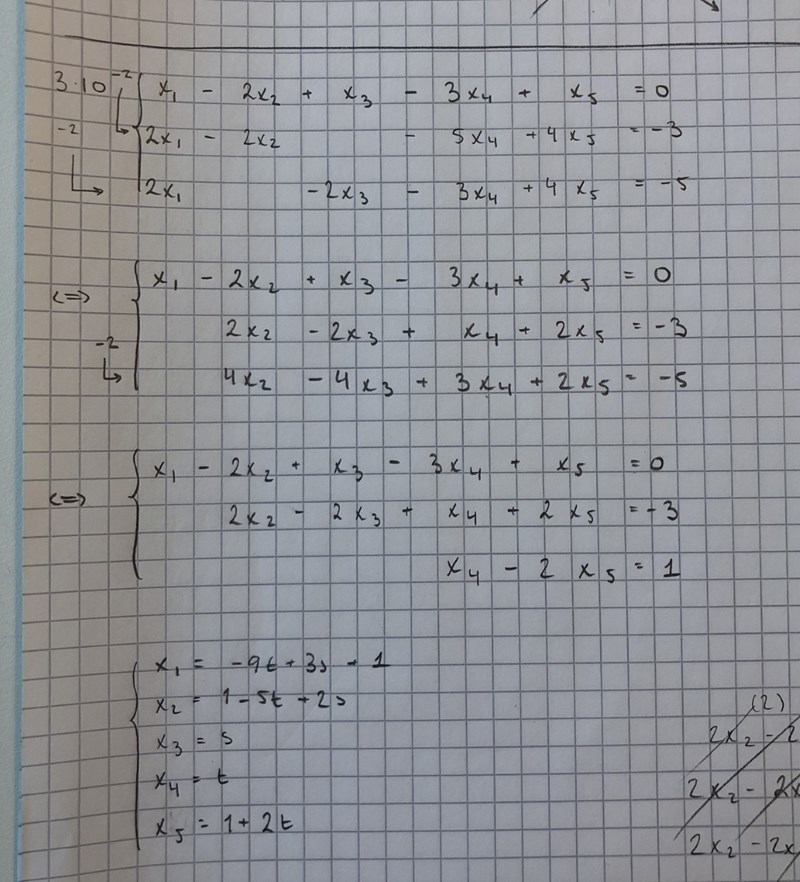 3.10 -2 x₁ - 2x₂ + x₃ - 3x₄ + x₅ = 0
-2 2x₁ - 2x₂ - 5x₄ + 4x₅ = -3
2x₁ - 2x₃ - 3x₄ + 4x₅ = -5
<=> x₁ - 2x₂ + x₃ - 3x₄ + x₅ = 0
2x₂ - 2x₃ + x₄ + 2x₅ = -3
-2 4x₂ - 4x₃ + 3x₄ + 2x₅ = -5
<=> x₁ - 2x₂ + x₃ - 3x₄ + x₅ = 0
2x₂ - 2x₃ + x₄ + 2x₅ = -3
x₄ - 2x₅ = 1
x₁ = -9t + 3s - 1
x₂ = 1 - 5t + 2s
x₃ = s
x₄ = t
x₅ = 1 + 2t
(2)
2x₂ - 2
2x₂ - 2x
2x₂ - 2x